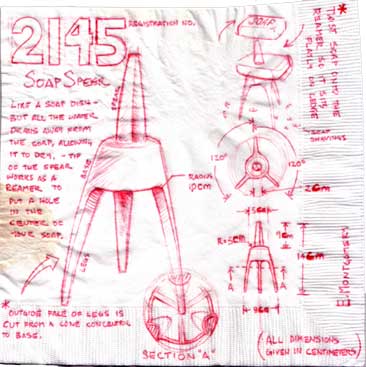 2145
REGISTRATION NO.
SOAP SPEAR
LIKE A SOAP DISH -
BUT ALL THE WATER
DRAINS AWAY FROM
THE SOAP, ALLOWING
IT TO DRY. - TIP
OF THE SPEAR
WORKS AS A
REAMER TO
PUT A HOLE
IN THE
CENTER OF
YOUR SOAP.
SPEAR
LEGS
RADIUS
SOAP
* TWIST SOAP ONTO THE
REAMER SO IT SITS
FLAT ON
SOAP
SHAVINGS
120°
120°
2cm
5cm
9cm
R.5cm
14cm
A
A
9cm
E MONTGOMERY
* OUTSIDE FACE OF LEGS IS
CUT FROM A CONE CONCENTRIC
TO BASE.
SECTION "A"
(ALL DIMENSIONS
GIVEN IN CENTIMETERS)